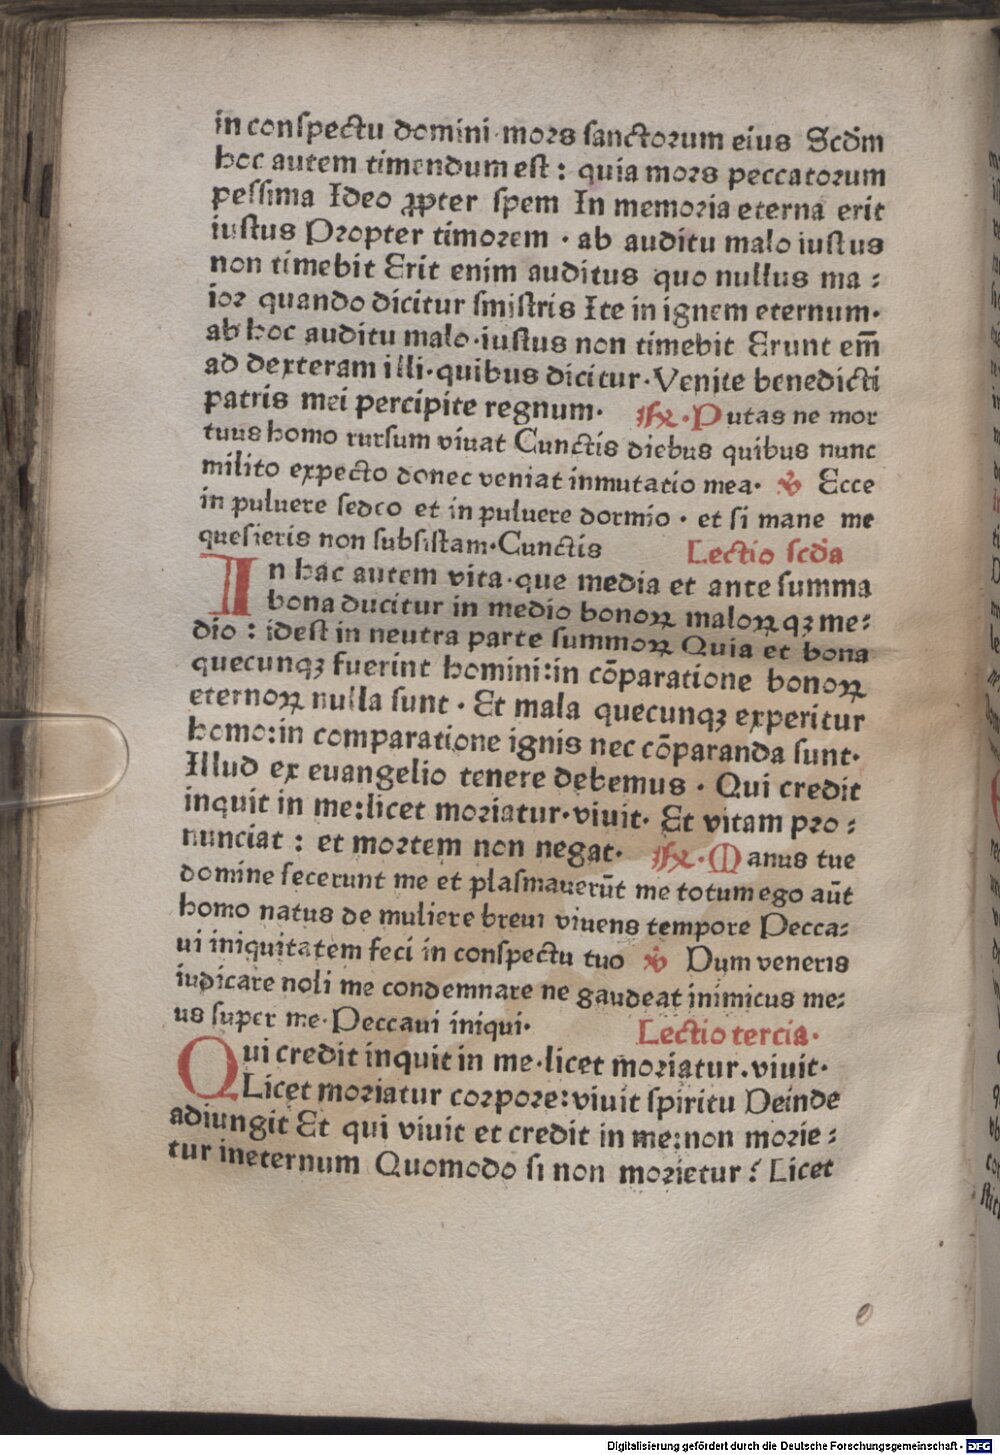 in conspectu domini mors sanctorum eius Scd̄m
hoc autem timendum est : quia mors peccatorum
pessima Ideo ꝓpter spem In memoria eterna erit
iustus Propter timorem · ab auditu malo iustus
non timebit Erit enim auditus quo nullus ma :
ior quando dicitur sinistris Ite in ignem eternum·
ab hoc auditu malo·iustus non timebit Erunt em̄
ad dexteram illi·quibus dicitur·Venite benedicti
patris mei percipite regnum· ℟·Putas ne mor
tuus homo rursum viuat Cunctis diebus quibus nunc
milito expecto donec veniat inmutatio mea· ℣ Ecce
in puluere sedeo et in puluere dormio · et si mane me
quesieris non subsistam·Cunctis Lectio scd̄a
In hac autem vita·que media et ante summa
bona ducitur in medio bonoꝝ maloꝝ qꝫ me:
dio : idest in neutra parte summoꝝ Quia et bona
quecunqꝫ fuerint homini:in cōparatione bonoꝝ
eternoꝝ nulla sunt · Et mala quecunqꝫ experitur
homo:in comparatione ignis nec cōparanda sunt·
Illud ex euangelio tenere debemus · Qui credit
inquit in me:licet moriatur·viuit· Et vitam pro :
nunciat : et mortem non negat· ℟·Manus tue
domine fecerunt me et plasmauerūt me totum ego aūt
homo natus de muliere breui viuens tempore Pecca:
ui iniquitatem feci in conspectu tuo ℣ Dum veneris
iudicare noli me condemnare ne gaudeat inimicus me:
us super me·Peccaui iniqui· Lectio tercia·
Qui credit inquit in me·licet moriatur.viuit·
Licet moriatur corpore:viuit spiritu Deinde
adiungit Et qui viuit et credit in me:non morie :
tur ineternum Quomodo si non morietur ? Licet
Digitalisierung gefördert durch die Deutsche Forschungsgemeinschaft - DFG